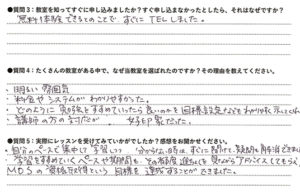 ●質問3：教室を知ってすぐに申し込みましたか？すぐ申し込まなかったとしたら、それはなぜですか？
無料体験できるとのことで すぐにTELしました。
●質問4：たくさんの教室がある中で、なぜ当教室を選ばれたのですか？その理由を教えてください。
・明るい雰囲気
・料金やシステムがわかりやすかった。
・どのように勉強をすすめていったら良いのかを目標設定などをわかりやすく示してくれ
・講師の方の対応が 好印象だった。
●質問5：実際にレッスンを受けてみていかがでしたか？感想をお聞かせください。
・自分のペースで集中して学習しつつ 分からない時は、すぐに聞けて、疑問を解消できました
・学習をすすめていくペースや期間も、その都度 進みぐあいを見ながらアドバイスしてもらえ
MOSの資格取得という目標を達成することができました。